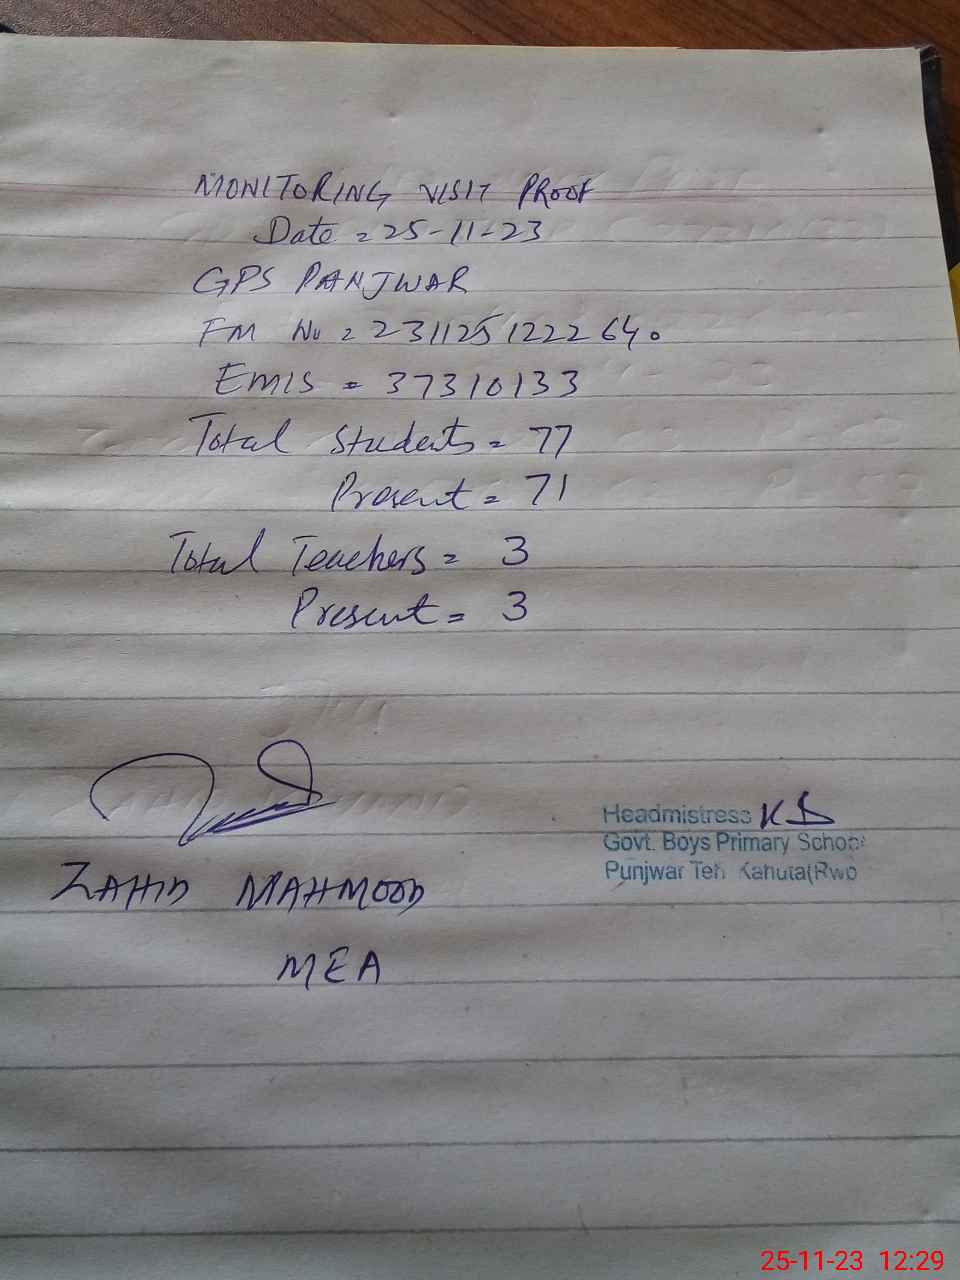 MONITORING VISIT PROOF
Date = 25-11-23
GPS PANJWAR
FM No = 2311251222640
EMIS = 37310133
Total Students = 77
Present = 71
Total Teachers = 3
Present = 3
ZAHID MAHMOOD
MEA
Headmistress
Govt. Boys Primary School
Punjwar Teh Kahuta(Rwp
25-11-23 12:29